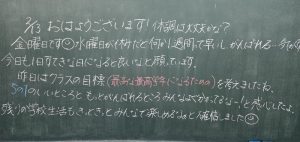 2/13 おはようございます!体調は大丈夫かな?
金曜日です 水曜日が休みだと何か1週間て早い。がんばれる…今から
今日も1日すてきな日になると良いなと願っています。
昨日はクラスの目標(最高な最高学年になるための)を考えましたね。
5の1のいいところと もっとがんばれるところみんなよく分かってるな~!と感心したよ。
残りの学校生活もきっときっとみんなで楽しめるなぁと確信しました